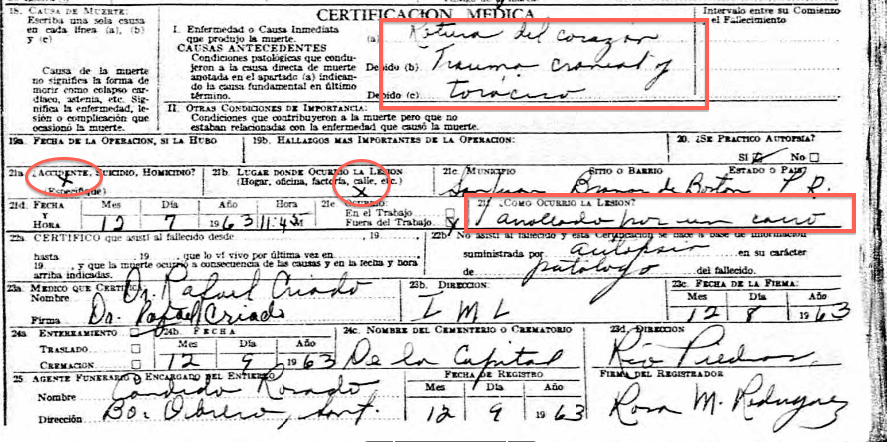 CERTIFICACION MEDICA
18. CAUSA DE MUERTE:
Escriba una sola causa
en cada línea (a), (b)
y (c)
Causa de la muerte
no significa la forma de
morir como colapso car-
díaco, astenia, etc. Sig-
nifica la enfermedad, le-
sión o complicación que
ocasionó la muerte.
I. Enfermedad o Causa Inmediata
que produjo la muerte. (a) Rotura del corazón
CAUSAS ANTECEDENTES
Condiciones patológicas que condu-
jeron a la causa directa de muerte
anotada en el apartado (a) indican-
do la causa fundamental en último
término.
Debido (b) Trauma craneal y
Debido (c) torácico
Intervalo entre su Comienzo
y el Fallecimiento
II. OTRAS CONDICIONES DE IMPORTANCIA:
Condiciones que contribuyeron a la muerte pero que no
estaban relacionadas con la enfermedad que causó la muerte.
19a. FECHA DE LA OPERACION, SI LA HUBO 19b. HALLAZGOS MAS IMPORTANTES DE LA OPERACION: 20. ¿SE PRACTICO AUTOPSIA?
SI NO
21a ¿ACCIDENTE, SUICIDIO, HOMICIDIO? 21b. LUGAR DONDE OCURRIO LA LESION 21c. MUNICIPIO SITIO O BARRIO ESTADO O PAIS?
(Especifique) X (Hogar, oficina, factoría, calle, etc.) X San Juan P.R.
21d. FECHA Y HORA Mes Día Año Hora 21e OCURRIO: 21f. ¿COMO OCURRIO LA LESION?
12 7 1963 11:45 M En el Trabajo Fuera del Trabajo X arrollado por un carro
22a. CERTIFICO que asistí al fallecido desde , 19
hasta 19 que lo ví vivo por última vez en
19 , y que la muerte ocurrió a consecuencia de las causas y en la fecha y hora
arriba indicadas.
22b No asistí al fallecido y esta Certificación se hace a base de información
suministrada por autopsia en su carácter
de patólogo del fallecido.
23a. MEDICO QUE CERTIFICA 23b. DIRECCION: 23c. FECHA DE LA FIRMA:
Nombre Dr. Rafael Criado I M L Mes Día Año
Firma Dr. Rafael Criado 12 8 1963
24a ENTERRAMIENTO 24b. FECHA 24c. NOMBRE DEL CEMENTERIO O CREMATORIO 23d. DIRECCION
TRASLADO Mes Día Año
CREMACION 12 9 1963 De la Capital Río Piedras
25 AGENTE FUNERARIO O ENCARGADO DEL ENTIERRO FECHA DE REGISTRO FIRMA DEL REGISTRADOR
Nombre Candido Rosado Mes Día Año
Dirección Bo. Obrero, Sant. 12 9 1963 Rosa M.